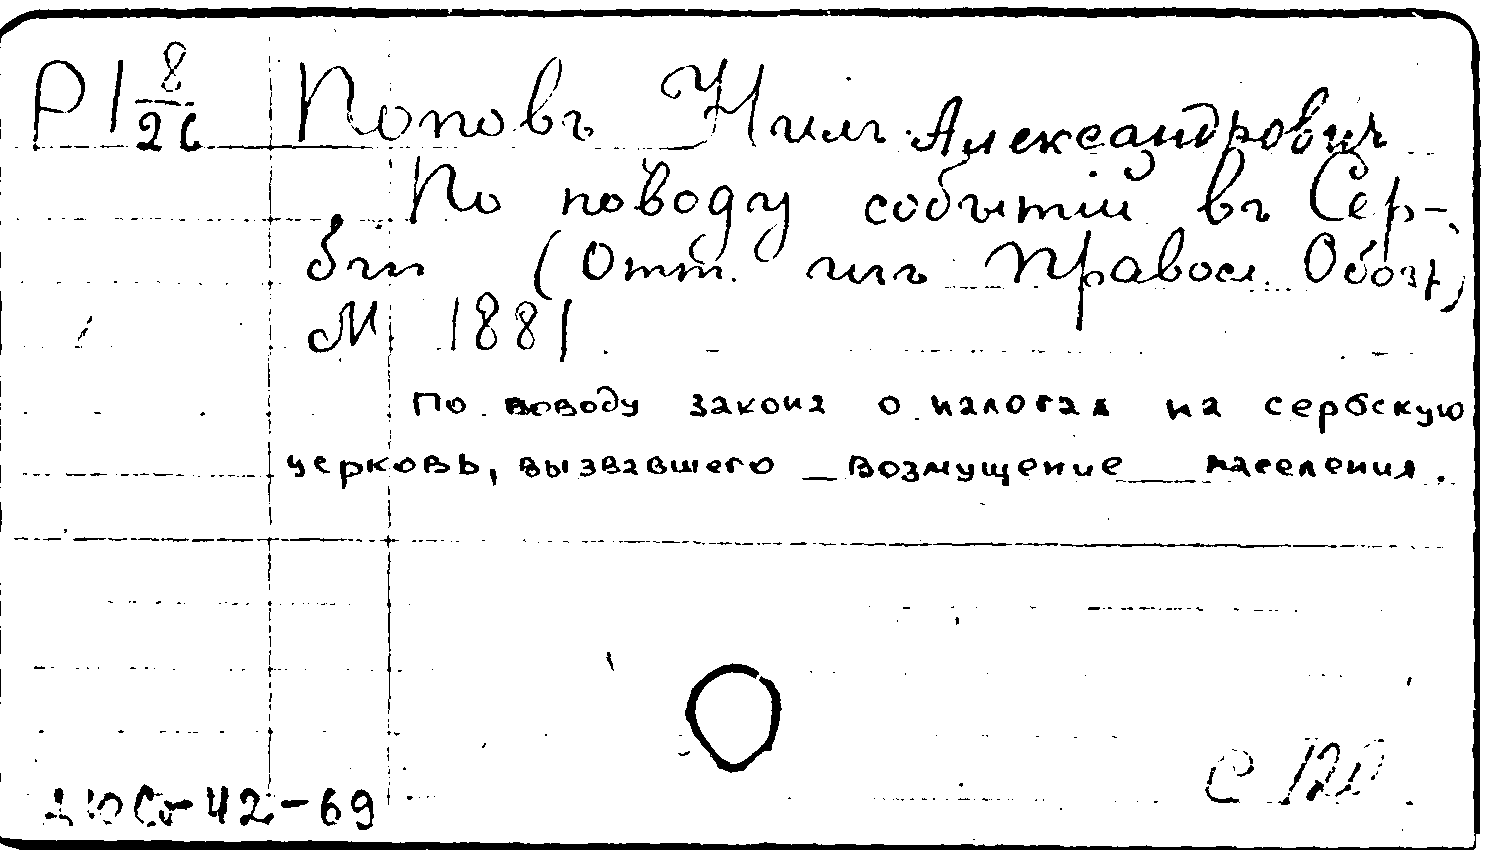 Р I 8/26 Попов Нил Александрович
По поводу событий въ Сер-
бии (Отт. изъ Правосл. Обозр)
М 1881
По поводу закона о налогах на сербскую
церковь, вызвавшего возмущение населения.
42-69
С 120